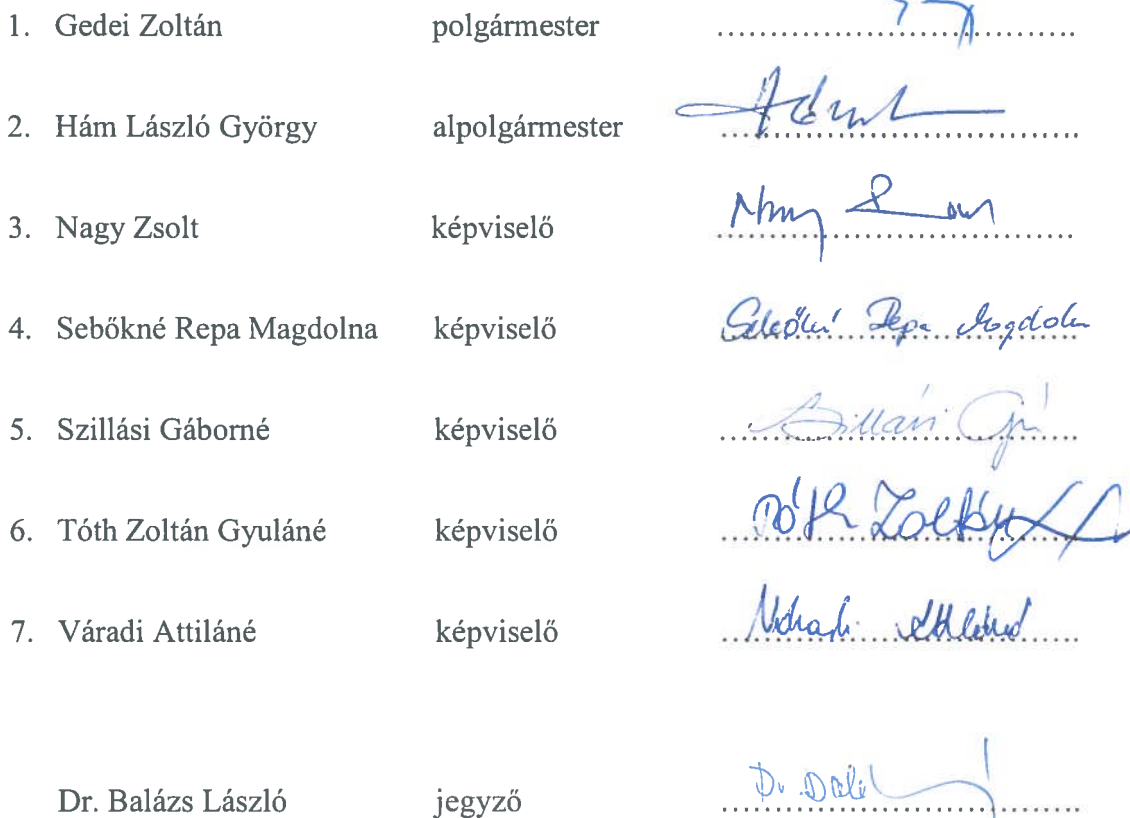 1. Gedei Zoltán polgármester ....................
2. Hám László György alpolgármester ....................
3. Nagy Zsolt képviselő ....................
4. Sebőkné Repa Magdolna képviselő Sebőkné Repa Magdolna
5. Szillási Gáborné képviselő Szillási
6. Tóth Zoltán Gyuláné képviselő Tóth Zoltán
7. Váradi Attiláné képviselő Váradi Attiláné
Dr. Balázs László jegyző Dr.